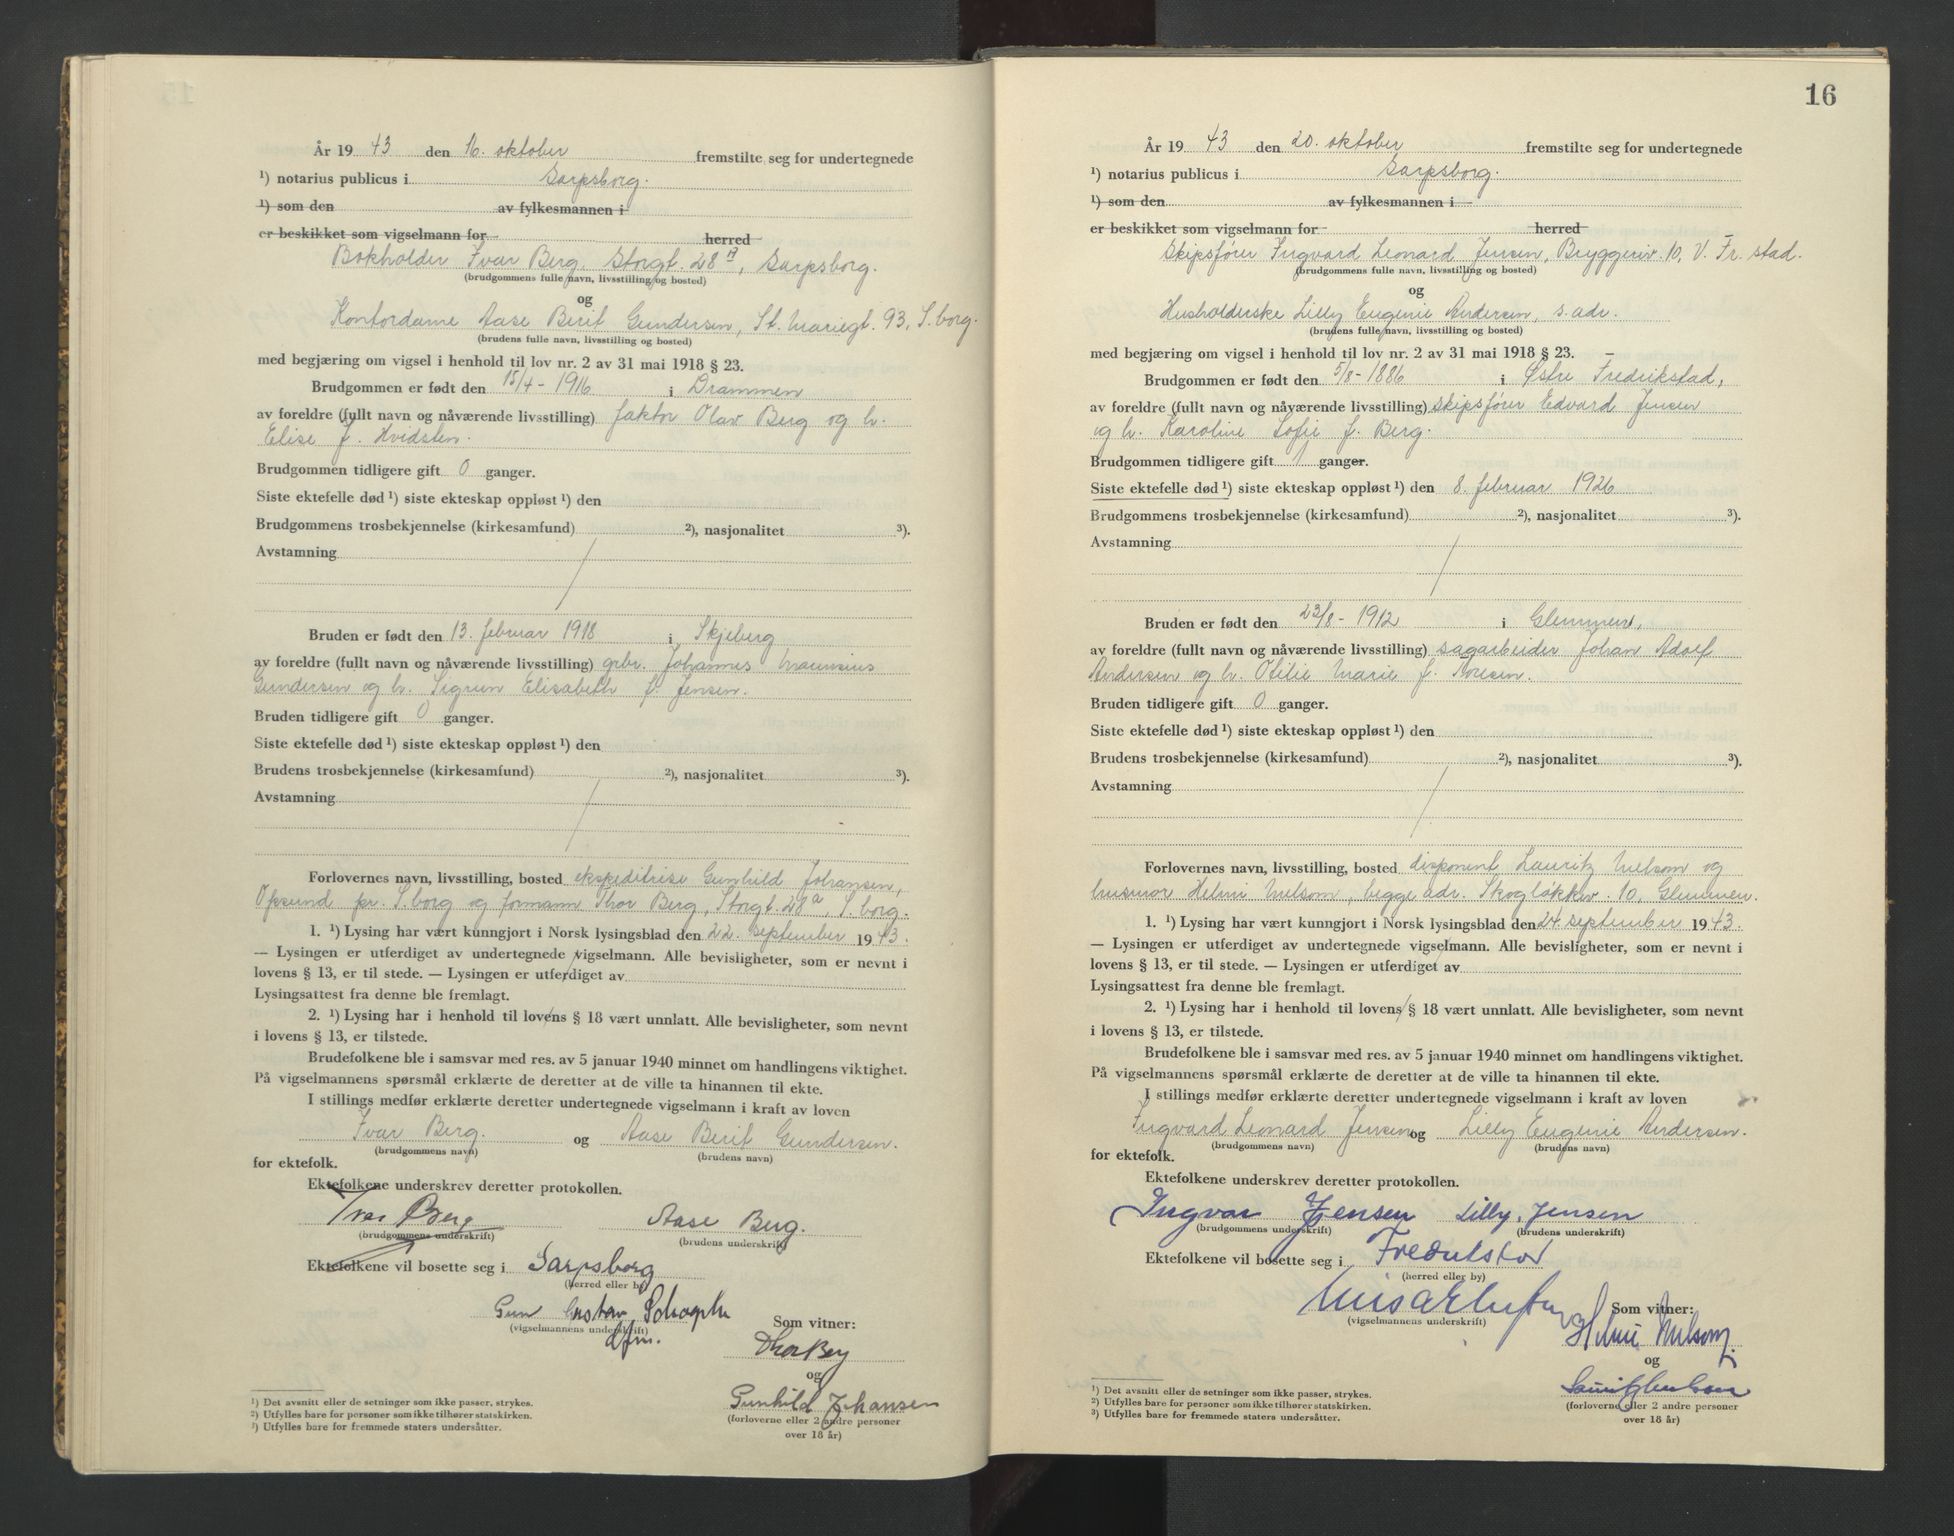 År 19 43 den 16. oktober fremstilte seg for undertegnede
¹) notarius publicus i Sarpsborg.
¹) som den av fylkesmannen i
er beskikket som vigselmann for herred
Bokholder Ivar Berg, Storgt. 28 A, Sarpsborg.
(brudgommens fulle navn, livsstilling og bosted)
og
Kontordame Aase Berit Gundersen, St. Mariegt. 93, S.borg.
(brudens fulle navn, livsstilling og bosted)
med begjæring om vigsel i henhold til lov nr. 2 av 31 mai 1918 § 23.
Brudgommen er født den 15/4 - 1916 i Drammen
av foreldre (fullt navn og nåværende livsstilling) faktor Olav Berg og h.
Elise f. Hvidsten.
Brudgommen tidligere gift 0 ganger.
Siste ektefelle død ¹) siste ekteskap oppløst ¹) den
Brudgommens trosbekjennelse (kirkesamfund) ²), nasjonalitet ³).
Avstamning
Bruden er født den 13. februar 1918 i Skjeberg
av foreldre (fullt navn og nåværende livsstilling) grbr. Johannes
Gundersen og h. Sigrun Elisabeth f. Jensen.
Bruden tidligere gift 0 ganger.
Siste ektefelle død ¹) siste ekteskap oppløst ¹) den
Brudens trosbekjennelse (kirkesamfund) ²), nasjonalitet ³).
Avstamning
Forlovernes navn, livsstilling, bosted ekspeditrise Gunhild Johansen,
Opsund pr. S.borg og formann Thor Berg, Storgt. 28a, S.borg.
1. ¹) Lysing har vært kunngjort i Norsk lysingsblad den 22. september 19 43.
— Lysingen er utferdiget av undertegnede vigselmann. Alle bevisligheter, som er nevnt i
lovens § 13, er til stede. — Lysingen er utferdiget av
Lysingsattest fra denne ble fremlagt.
2. ¹) Lysing har i henhold til lovens § 18 vært unnlatt. Alle bevisligheter, som nevnt
i lovens § 13, er tilstede.
Brudefolkene ble i samsvar med res. av 5 januar 1940 minnet om handlingens viktighet.
På vigselmannens spørsmål erklærte de deretter at de ville ta hinannen til ekte.
I stillings medfør erklærte deretter undertegnede vigselmann i kraft av loven
Ivar Berg. og Aase Berit Gundersen.
(brudgommens navn) (brudens navn)
for ektefolk.
Ektefolkene underskrev deretter protokollen.
Ivar Berg Aase Berg.
(brudgommens underskrift) (brudens underskrift)
Ektefolkene vil bosette seg i Sarpsborg
(herred eller by)
Gustav
(vigselmannens underskrift) Som vitner:
dfm.
Thor Berg
og
Gunhild Johansen
(forloverne eller 2 andre personer
over 18 år)
¹) Det avsnitt eller de setninger som ikke passer, strykes.
²) Utfylles bare for personer som ikke tilhører statskirken.
³) Utfylles bare for fremmede staters undersåtter.
16
År 19 43 den 20. oktober fremstilte seg for undertegnede
¹) notarius publicus i Sarpsborg.
¹) som den av fylkesmannen i
er beskikket som vigselmann for herred
Skipsfører Ingvard Leonard Jensen, Bryggeriv. 10, V. Fr.stad.
(brudgommens fulle navn, livsstilling og bosted)
og
Husholderske Lilly Eugenie Andersen, s. adr.
(brudens fulle navn, livsstilling og bosted)
med begjæring om vigsel i henhold til lov nr. 2 av 31 mai 1918 § 23.
Brudgommen er født den 5/8 - 1886 i Østre Fredrikstad,
av foreldre (fullt navn og nåværende livsstilling) skipsfører Edvard Jensen
og h. Karoline Sofie f. Berg.
Brudgommen tidligere gift 1 ganger.
Siste ektefelle død ¹) siste ekteskap oppløst ¹) den 8. februar 1926
Brudgommens trosbekjennelse (kirkesamfund) ²), nasjonalitet ³).
Avstamning
Bruden er født den 23/8 - 1912 i Glemmen,
av foreldre (fullt navn og nåværende livsstilling) sagarbeider Johan Adolf
Andersen og h. Otilie Marie f.
Bruden tidligere gift 0 ganger.
Siste ektefelle død ¹) siste ekteskap oppløst ¹) den
Brudens trosbekjennelse (kirkesamfund) ²), nasjonalitet ³).
Avstamning
Forlovernes navn, livsstilling, bosted disponent Lauritz Nelson og
husmor Helmi Nelson, begge adr. Skogløkkv. 10, Glemmen.
1. ¹) Lysing har vært kunngjort i Norsk lysingsblad den 24. september 19 43.
— Lysingen er utferdiget av undertegnede vigselmann. Alle bevisligheter, som er nevnt i
lovens § 13, er til stede. — Lysingen er utferdiget av
Lysingsattest fra denne ble fremlagt.
2. ¹) Lysing har i henhold til lovens § 18 vært unnlatt. Alle bevisligheter, som nevnt
i lovens § 13, er tilstede.
Brudefolkene ble i samsvar med res. av 5 januar 1940 minnet om handlingens viktighet.
På vigselmannens spørsmål erklærte de deretter at de ville ta hinannen til ekte.
I stillings medfør erklærte deretter undertegnede vigselmann i kraft av loven
Ingvard Leonard Jensen og Lilly Eugenie Andersen.
(brudgommens navn) (brudens navn)
for ektefolk.
Ektefolkene underskrev deretter protokollen.
Ingvar Jensen Lilly Jensen
(brudgommens underskrift) (brudens underskrift)
Ektefolkene vil bosette seg i Fredrikstad
(herred eller by)
Som vitner:
(vigselmannens underskrift)
Helmi Nelson
og
(forloverne eller 2 andre personer
over 18 år)
¹) Det avsnitt eller de setninger som ikke passer, strykes.
²) Utfylles bare for personer som ikke tilhører statskirken.
³) Utfylles bare for fremmede staters undersåtter.